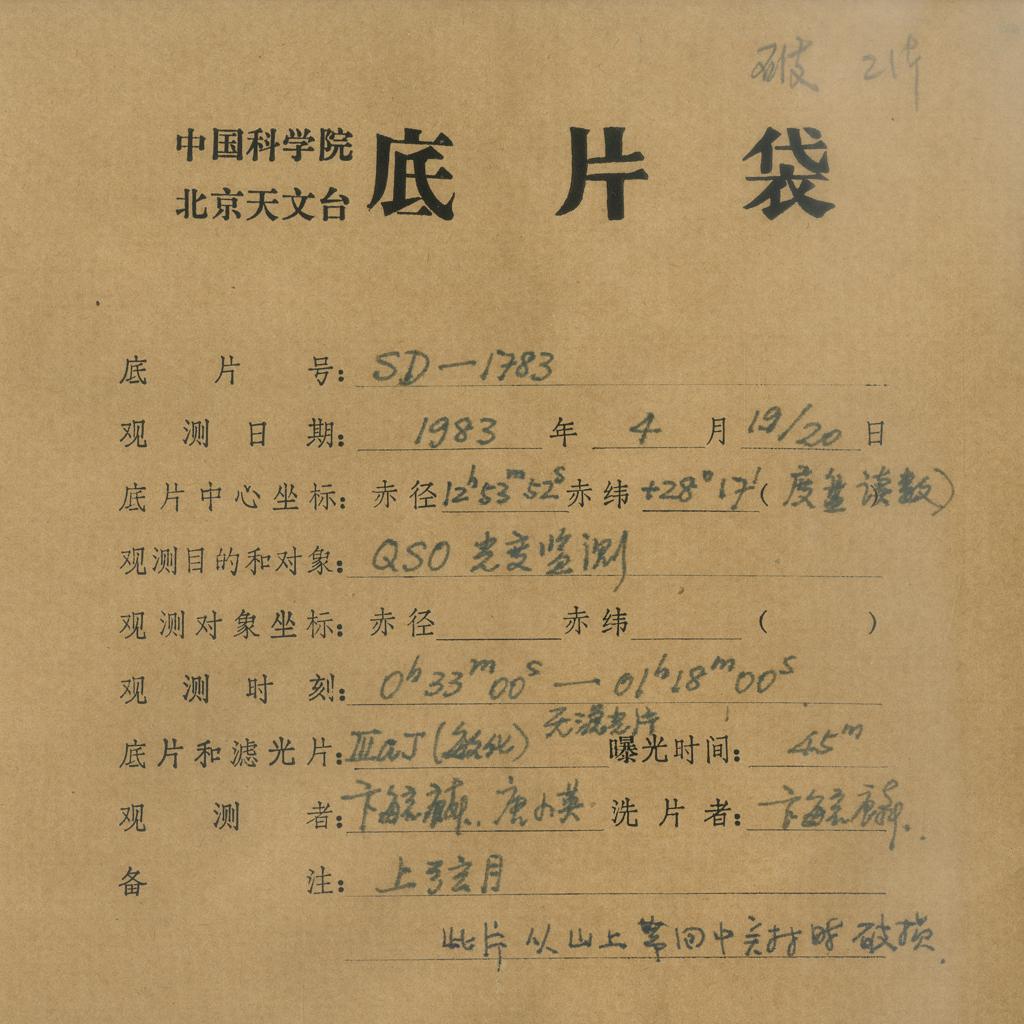 破 2片
中国科学院
北京天文台
底片袋
底片号: SD—1783
观测日期: 1983 年 4 月 19/20 日
底片中心坐标: 赤径 12ʰ53ᵐ52ˢ 赤纬 +28°17′ (度盘读数)
观测目的和对象: QSO 光变监测
观测对象坐标: 赤径 赤纬 ( )
观测时刻: 0ʰ33ᵐ00ˢ — 01ʰ18ᵐ00ˢ
底片和滤光片: ⅢaJ (敏化) 无滤光片 曝光时间: 45ᵐ
观测者: 卞毓麟. 唐小英 洗片者: 卞毓麟.
备注: 上弦月
此片从山上带回中关村时破损.